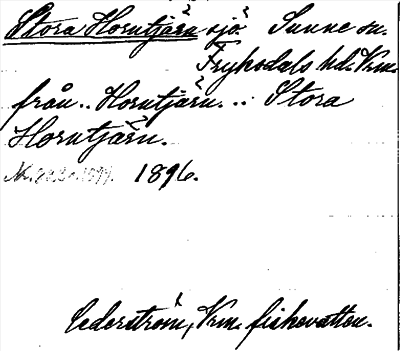 Stora Horntjärn sjö Sunne sn.
Fryksdals hd. Vrm.
från .. Horntjärn. .. Stora
Horntjärn.
1896.
Cederström, Vrm. fiskevatten.